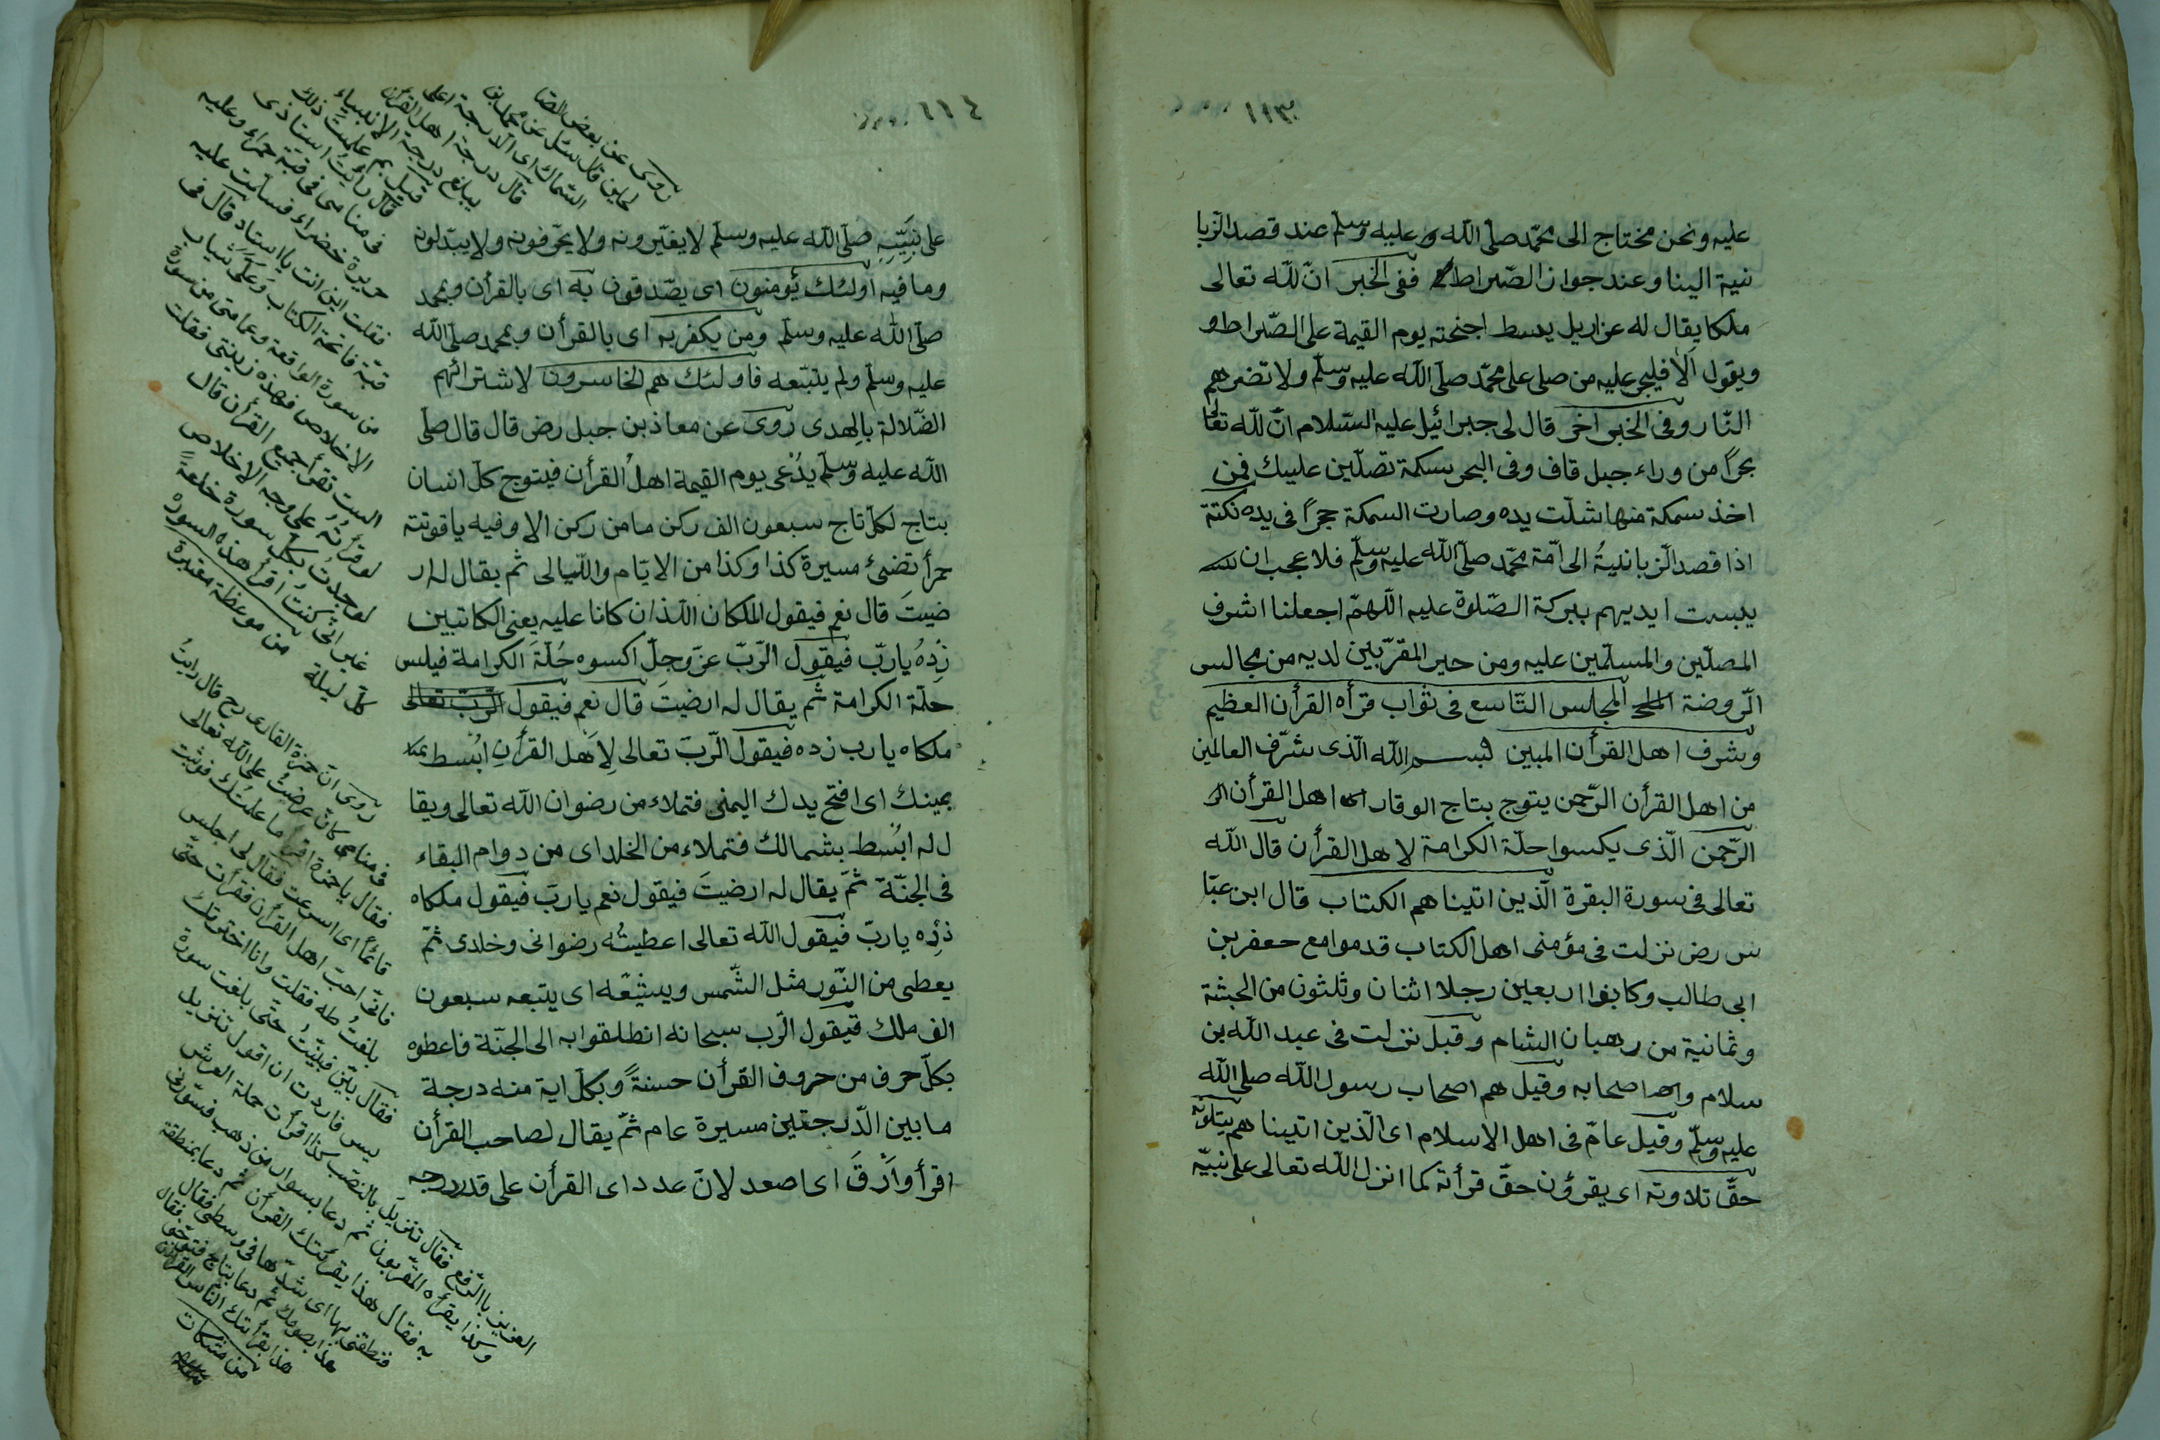 ١١٣
عليه ونحن محتاج الى محمّد صلّى اللّه عليه وسلّم عند قصد الزّبا
نية الينا وعند جواز الصّراط ففى الخبر انّ للّه تعالى
ملكا يقال له عزاريل يبسط اجنحته يوم القيمة على الصّراط و
ويقول ألا فليجر عليه من صلى على محمّد صلّى اللّه عليه وسلّم ولا تضرهم
النّار وفى الخبر اخر قال لى جبرائيل عليه السّلام انّ للّه تعالى
بحرًا من وراء جبل قاف وفى البحر سمكة تصلّين عليك فمن
اخذ سمكة منها شلّت يده وصارت السمكة حجرًا فى يده نكتة
اذا قصد الزّبانيةُ الى امّة محمّد صلّى اللّه عليه وسلّم فلا عجب ان
يبست ايديهم ببركة الصّلوة عليه اللّهمّ اجعلنا اشرف
المصلّين والمسلّمين عليه ومن حير المقرّبين لديه من مجالس
الرّوضة المجلس التّاسع فى ثواب قرأه القرأن العظيم
وشرف اهل القرأن المبين بسم اللّه الّذى شرّف العالمين
من اهل القرأن الرّحمن يتوج بتاج الوقار اهل القرأن
الرّحمن الّذى يكسوا حلّة الكرامة لاهل القرأن قال اللّه
تعالى فى سورة البقرة الّذين اتيناهم الكتاب قال ابن عبّا
س رض نزلت فى مؤمنى اهل الكتاب قدموا مع جعفر بن
ابى طالب وكانوا اربعين رجلا اثنان وثلثون من الحبشة
وثمانية من رهبان الشام وقيل نزلت فى عبد اللّه بن
سلام واصحابه وقيل هم اصحاب رسول اللّه صلى اللّه
عليه وسلّم وقيل عامّ فى اهل الاسلام اى الّذين اتيناهم يتلونه
حقّ تلاوته اى يقرؤن حقّ قرأته كما انزل اللّه تعالى على نبيّه
١١٤
على نبيّه صلّى اللّه عليه وسلّم لا يغيّرونه ولا يحّرفونه ولا يبدّلونه
وما فيه اولئك يؤمنون اى يصّدقون به اى بالقرأن وبمحمد
صلّى اللّه عليه وسلّم ومن يكفر به اى بالقرأن وبمحمد صلّى اللّه
عليه وسلّم ولم يتبّعه فاولئك هم الخاسرون لاشترائهم
الضّلالة بالهدى روى عن معاذ بن جبل رض قال قال صلّى
اللّه عليه وسلّم يدُعى يوم القيمة اهلُ القرأن فيتوج كلّ انسان
بتاج لكلّ تاج سبعون الف ركن ما من ركن الا وفيه ياقوتة
حمرأ تضئ مسيرة كذا وكذا من الايّام واللّيالى ثم يقال له ار
ضيتَ قال نعم فيقول الملكان اللّذان كانا عليه يعنى الكاتبين
زدهُ ياربّ فيقول الرّبّ عزّ وجلّ اكسوه حُلّةَ الكرامة فيلبس
حلّة الكرامة ثّم يقال له ارضيتَ قال نعم فيقول الرّبّ تعالى
ملكاه يارب زده فيقول الرّبّ تعالى لِاَهل القرأنِ ابُسط
يمينك اى افتح يدك اليمنى فتملاء من رضوان اللّه تعالى ويقا
ل له ابُسط بشمالك فتملاء من الخلد اى من دوام البقاء
فى الجنّة ثمّ يقال له ارضيتَ فيقول نعم ياربّ فيقول ملكاه
زِده ياربّ فيقول اللّه تعالى اعطيتُه رضوانى وخلدى ثمّ
يعطى من النّور مثل الشّمس ويشيّعه اى يتبعه سبعون
الف ملك فيقول الرّب سبحانه انطلقوا به الى الجنّة فاعطوه
بكلّ حرف من حروف القرأن حسنةً وبكلّ اية منه درجة
ما بين الدّرجتين مسيرة عام ثمّ يقال لصاحب القرأن
اقرأ وارْقَ اى اصعد لانّ عدد اى القرأن على قدر درجه
روى عن بعض الصّا
لحين قال سئل عن محمّد بن
السّماك اى الدّرجة اعلى
قال درجة اهل القرأن
يبلغ درجة الانبياء
قيل بم علمتَ ذلك
قال رأيت استاذى
فى منامى فى قبّة حمراء وعليه
حريرة خضراء فسلّمت عليه
فقلت اين انت يا استاد قال فى
قبّة فاتحة الكتاب وعَلَىّ ثياب
من سورة الواقعة وعمامتى من سورة
الاخلاص فهذه زينتى فقلت
الست تقرأ جميع القرأن قال
لو قرأتُه على وجه الاخلاص
لوجدتُ بكلّ سورة خلعةً
غير انّى كنتُ اقرأ هذه السوره
كلّ ليلة من موعظة معتبرة
روى انّ حمزة القارى رح قال رايتُ
فى منامى كانّى عرضتُ على اللّه تعالى
فقال يا حمزة اقرأ ما علّمتُك فوثبت
قائمًا اى اسرعت فقال لى اجلس
فانّى احبّ اهل القرأن فقرأت حتّى
بلغتُ طه فقلت وانا اخترتك
فقال بيّن فبيّنتُ حتّى بلغت سورة
يس فاردت ان اقول تنزيل
العزيز بالرّفع فقال تنزيلَ بالنّصب كذا اقرأت حملة العرش
وكذا يقرأه المقّربون ثم دعا بسوار من ذهب فسوّرنى
به فقال هذا بقرأتك القرأن ثم دعا بمنطقة
فنطقنى بها اى شدّها فى وسطى فقال
هذا بصومك ثم دعا بتاج فتوّجنى فقال
هذا بقرأتك النّاس القرأن
من مشكات